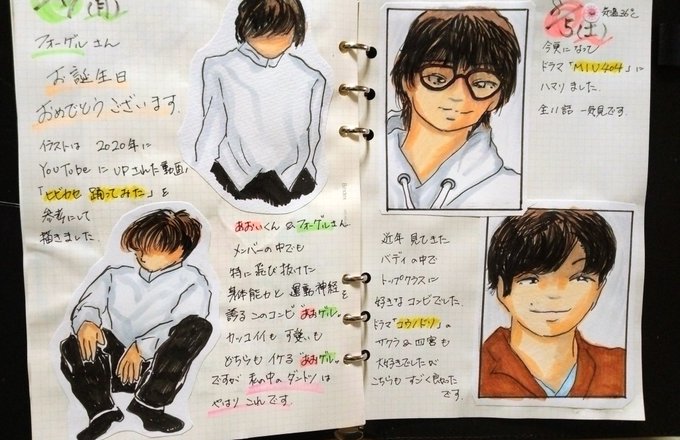 (月)
フォーゲルさん
お誕生日
おめでとうございます.
イラストは 2020年に
YOUTUBEにUPされた動画
「ヒビカセ 踊ってみた」を
参考にして
描きました.
あおいくん&フォーゲルさん
メンバーの中でも
特に飛び抜けた
身体能力と運動神経を
誇るこのコンビ"あおゲル"。
カッコイイも可愛いも
どちらもイケる"あおゲル"。
ですが私の中のダントツは
やはりこれです.
5(土) 気温36℃
今更になって
ドラマ「MIU404」に
ハマりました.
全11話 一気見です.
近年見てきた
バディの中で
トップクラスに
好きなコンビでした.
ドラマ「コウノドリ」の
サクラ&四宮も
大好きでしたが
こちらもすごく良かった
です.